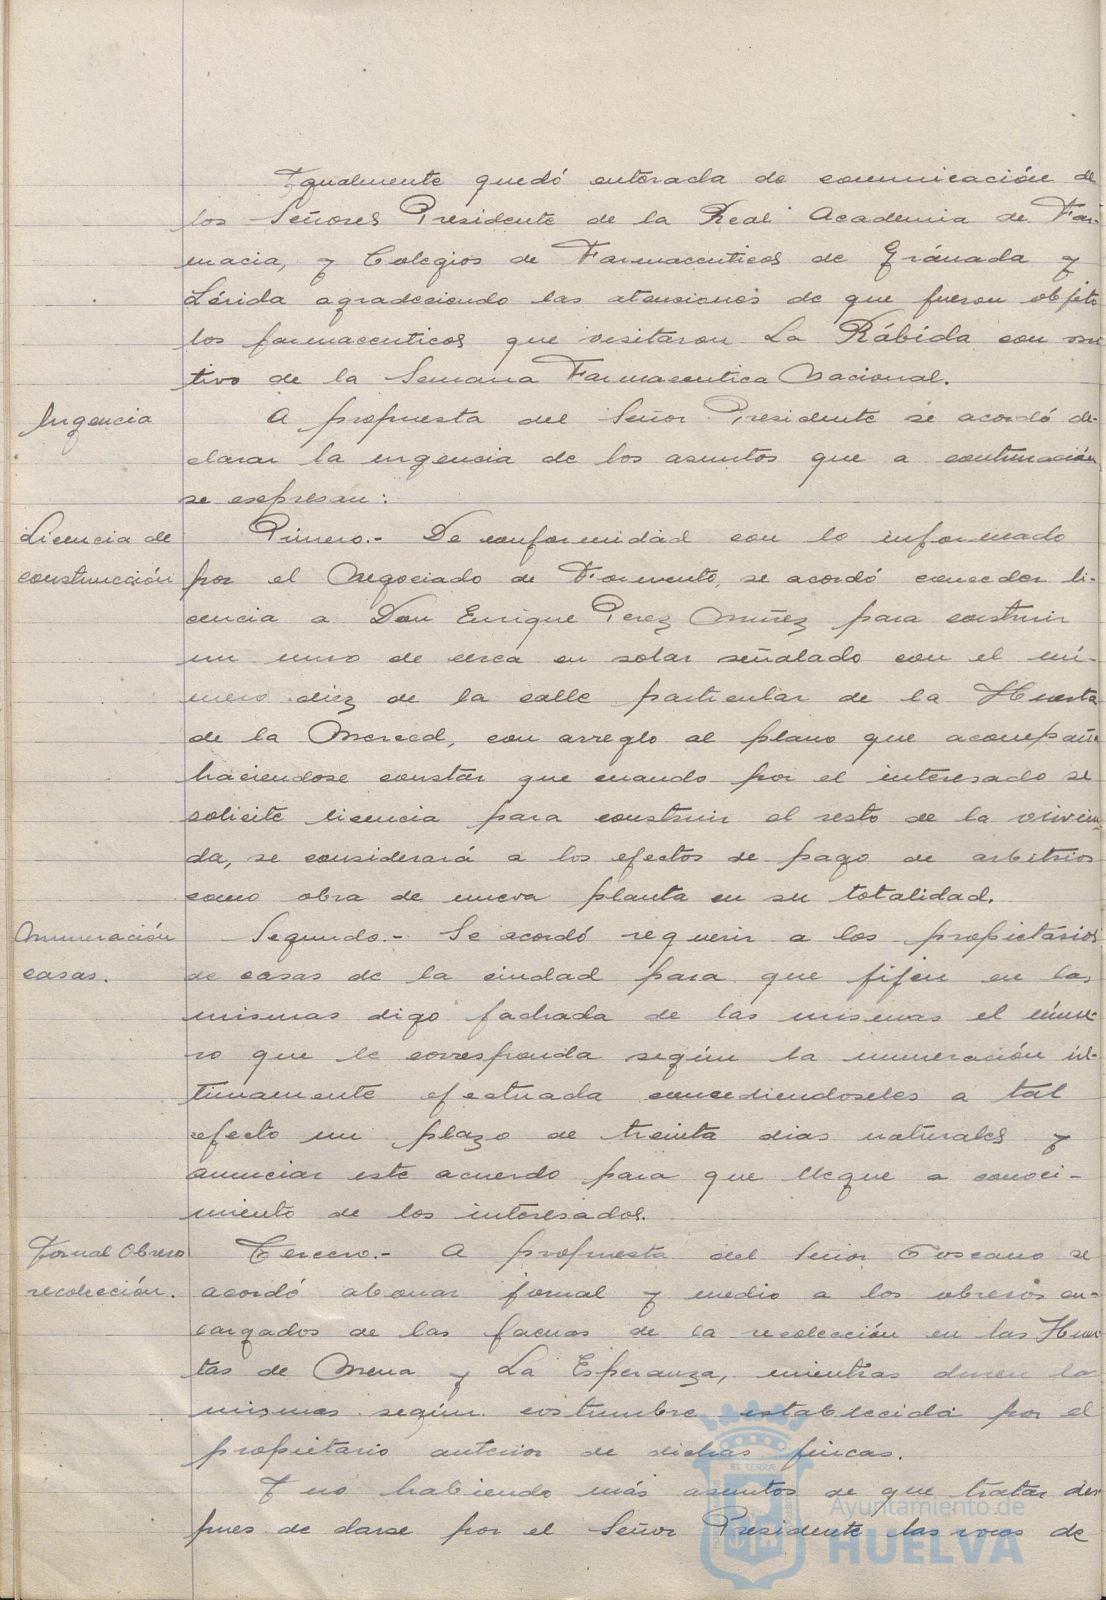 Igualmente quedó enterada de comunicación de
los Señores Presidente de la Real Academia de Far-
macia, y Colegios de Farmaceuticos de Gránada y
Lérida agradeciendo las atensiones de que fueron objeto
los farmaceuticos que visitaron La Rábida con mo
tivo de la Semana Farmaceutica Nacional.
Urgencia
A propuesta del Señor Presidente se acordó de-
clarar la urgencia de los asuntos que a continuación
se expresan:
Licencia de
construcción
Primero.- De conformidad con lo informado
por el Negociado de Fomento, se acordó conceder li-
cencia a Don Enrique Perez Nuñez para construir
un muro de cerca en solar señalado con el nú-
mero diez de la calle particular de la Huerta
de la Merced, con arreglo al plano que acompaña
haciendose constar que cuando por el interesado se
solicite licencia para construir el resto de la vivien-
da, se considerará a los efectos de pago de arbitrios
como obra de nueva planta en su totalidad.
Numeración
casas.
Segundo.- Se acordó requerir a los propietários
de casas de la ciudad para que fijen en las
mismas digo fachada de las mismas el núme-
ro que le corresponda según la numeración úl-
timamente efectuada concediendoseles a tal
efecto un plazo de treinta dias naturales y
anunciar este acuerdo para que llegue a conoci-
miento de los interesados.
Jornal Obrero
recolección.
Tercero.- A propuesta del Señor Toscano se
acordó abonar jornal y medio a los obreros en-
cargados de las faenas de la recolección en las Huer
tas de Mena y La Esperanza, mientras duren las
mismas según costumbre establecida por el
propietario anterior de dichas fincas.
Y no habiendo más asuntos de que tratar des
pues de darse por el Señor Presidente las voces de
Ayuntamiento de
HUELVA